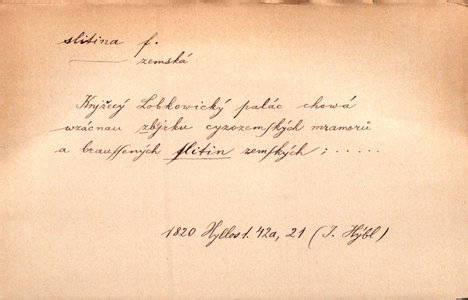 slitina f.
zemská
Knjžecý Lobkowický palác chowá
wzácnau zbjrku cyzozemských mramorů
a braussených slitin zemských; .....
1820 Hyllos 1. 42a, 21 (J. Hýbl)